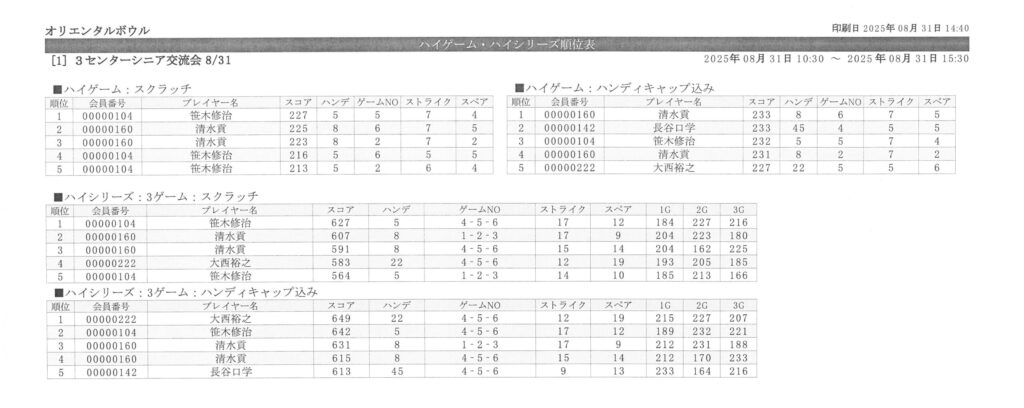 オリエンタルボウル
印刷日 2025年 08月 31日 14:40
ハイゲーム・ハイシリーズ順位表
[1] 3センターシニア交流会 8/31
2025年 08月 31日 10:30 ～ 2025年 08月 31日 15:30
■ハイゲーム：スクラッチ
順位 会員番号 プレイヤー名 スコア ハンデ ゲームNO ストライク スペア
1 00000104 笹木修治 227 5 5 7 4
2 00000160 清水貢 225 8 6 7 5
3 00000160 清水貢 223 8 2 7 2
4 00000104 笹木修治 216 5 6 5 5
5 00000104 笹木修治 213 5 2 6 4
■ハイゲーム：ハンディキャップ込み
順位 会員番号 プレイヤー名 スコア ハンデ ゲームNO ストライク スペア
1 00000160 清水貢 233 8 6 7 5
2 00000142 長谷口学 233 45 4 5 5
3 00000104 笹木修治 232 5 5 7 4
4 00000160 清水貢 231 8 2 7 2
5 00000222 大西裕之 227 22 5 5 6
■ハイシリーズ：3ゲーム：スクラッチ
順位 会員番号 プレイヤー名 スコア ハンデ ゲームNO ストライク スペア 1G 2G 3G
1 00000104 笹木修治 627 5 4-5-6 17 12 184 227 216
2 00000160 清水貢 607 8 1-2-3 17 9 204 223 180
3 00000160 清水貢 591 8 4-5-6 15 14 204 162 225
4 00000222 大西裕之 583 22 4-5-6 12 19 193 205 185
5 00000104 笹木修治 564 5 1-2-3 14 10 185 213 166
■ハイシリーズ：3ゲーム：ハンディキャップ込み
順位 会員番号 プレイヤー名 スコア ハンデ ゲームNO ストライク スペア 1G 2G 3G
1 00000222 大西裕之 649 22 4-5-6 12 19 215 227 207
2 00000104 笹木修治 642 5 4-5-6 17 12 189 232 221
3 00000160 清水貢 631 8 1-2-3 17 9 212 231 188
4 00000160 清水貢 615 8 4-5-6 15 14 212 170 233
5 00000142 長谷口学 613 45 4-5-6 9 13 233 164 216